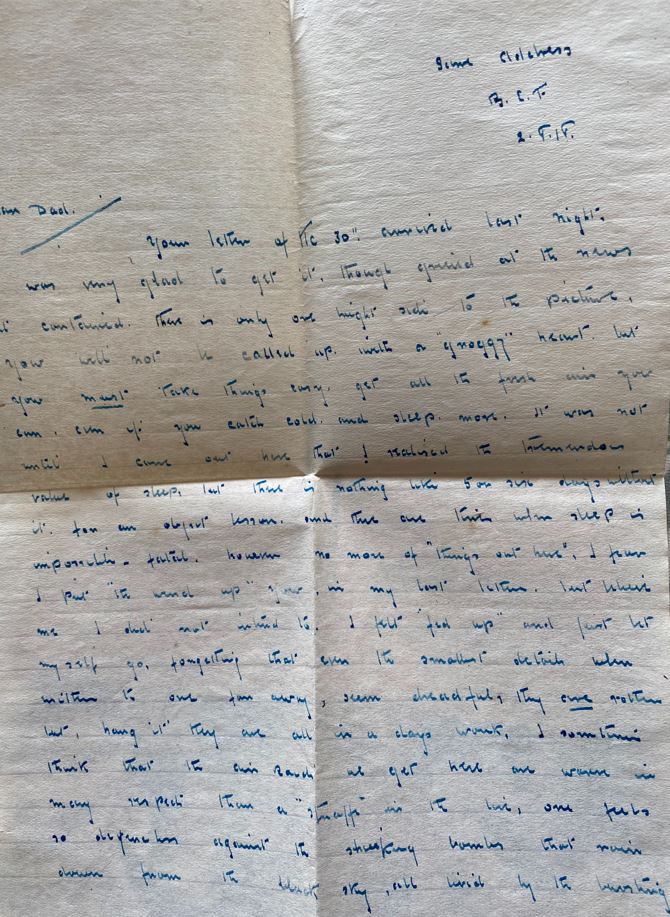 Same Address
B.E.F.
2.7.17.
Dad.
Your letter of the 30th arrived last night,
was very glad to get it, though grieved at the news
it contained. There is only one bright side to the picture,
you will not be called up. with a "groggy" heart. but
you must take things easy. get all the fresh air you
can. even if you catch cold. and sleep. more. It was not
until I came out here that I realised the tremendous
value of sleep, but there is nothing like 5 or six days without
it. for an object lesson. and there are times when sleep is
impossible – fatal. however no more of "things out here", I fear
I put "the wind up" you, in my last letter. but believe
me I did not intend to. I felt "fed up" and just let
myself go, forgetting that even the smallest details when
written to one far away, seem dreadful, they are rotten
but, hang it they are all in a days work, I sometimes
think that the air raids we get here are worse in
many respects than a "straffe" in the line, one feels
so defenceless against the shrieking bombs that rain
down from the black sky, all livid by the bursting